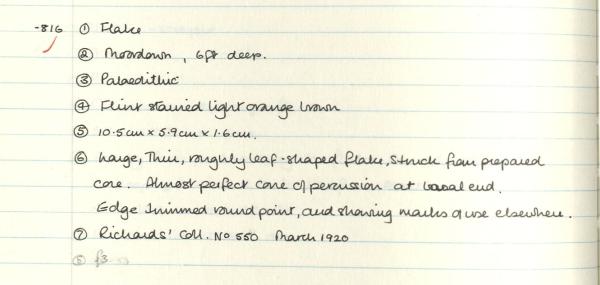 -816 ① Flake
② Moordown, 6ft deep.
③ Palaeolithic
④ Flint stained light orange brown
⑤ 10.5cm x 5.9cm x 1.6cm.
⑥ Large, Thin, roughly leaf-shaped flake, struck from prepared
core. Almost perfect cone of percussion at basal end.
Edge trimmed round point, and showing marks of use elsewhere.
⑦ Richards' Coll. No 550 March 1920
⑧ f3